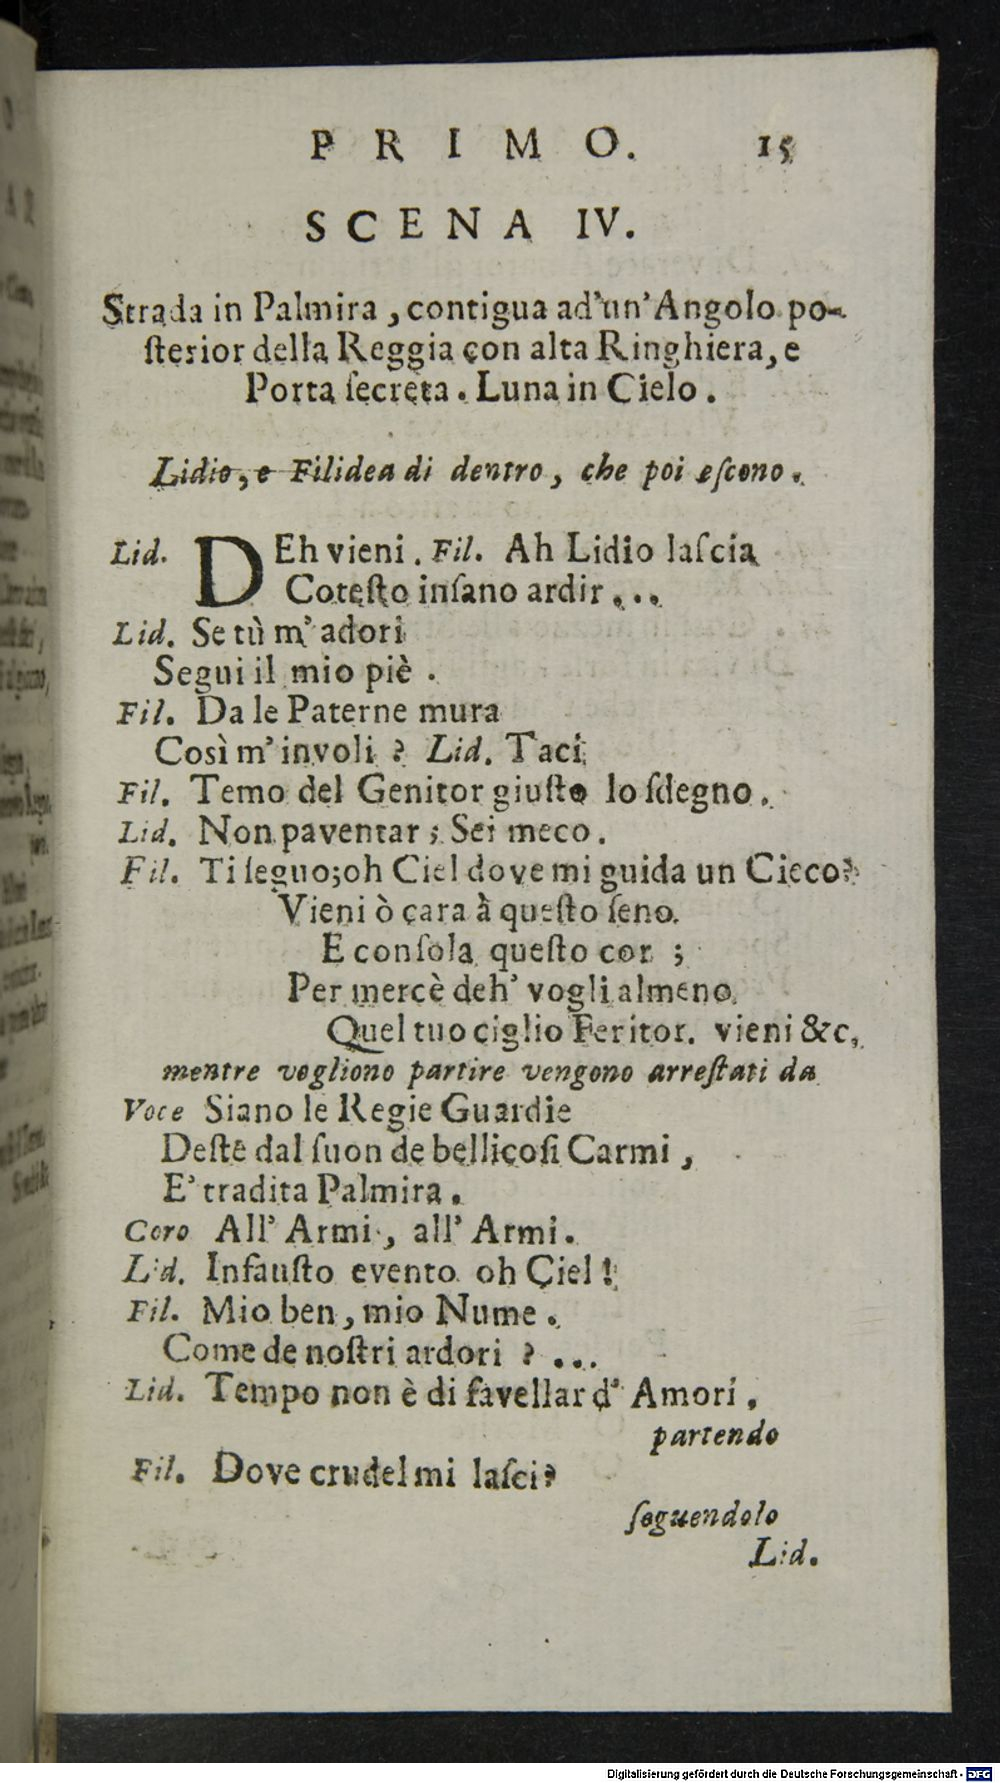 PRIMO. 15
SCENA IV.
Strada in Palmira, contigua ad'un' Angolo po-
ſterior della Reggia con alta Ringhiera, e
Porta ſecreta. Luna in Cielo.
Lidio, e Filidea di dentro, che poi eſcono.
Lid. DEh vieni. Fil. Ah Lidio laſcia
Coteſto inſano ardir...
Lid. Se tù m' adori
Segui il mio piè.
Fil. Da le Paterne mura
Così m' involi? Lid. Taci
Fil. Temo del Genitor giuſto lo ſdegno.
Lid. Non paventar; Sei meco.
Fil. Ti ſeguo; oh Ciel dove mi guida un Cieco?
Vieni ò cara à queſto ſeno.
E conſola queſto cor;
Per mercè deh' vogli almeno
Quel tuo ciglio Feritor. vieni &c.
mentre vogliono partire vengono arreſtati da
Voce Siano le Regie Guardie
Deſte dal ſuon de bellicoſi Carmi,
E' tradita Palmira.
Coro All' Armi, all' Armi.
Lid. Infauſto evento oh Ciel!
Fil. Mio ben, mio Nume.
Come de noſtri ardori?...
Lid. Tempo non è di favellar d' Amori.
partendo
Fil. Dove crudel mi laſci?
ſeguendolo
Lid.
Digitalisierung gefördert durch die Deutsche Forschungsgemeinschaft - DFG